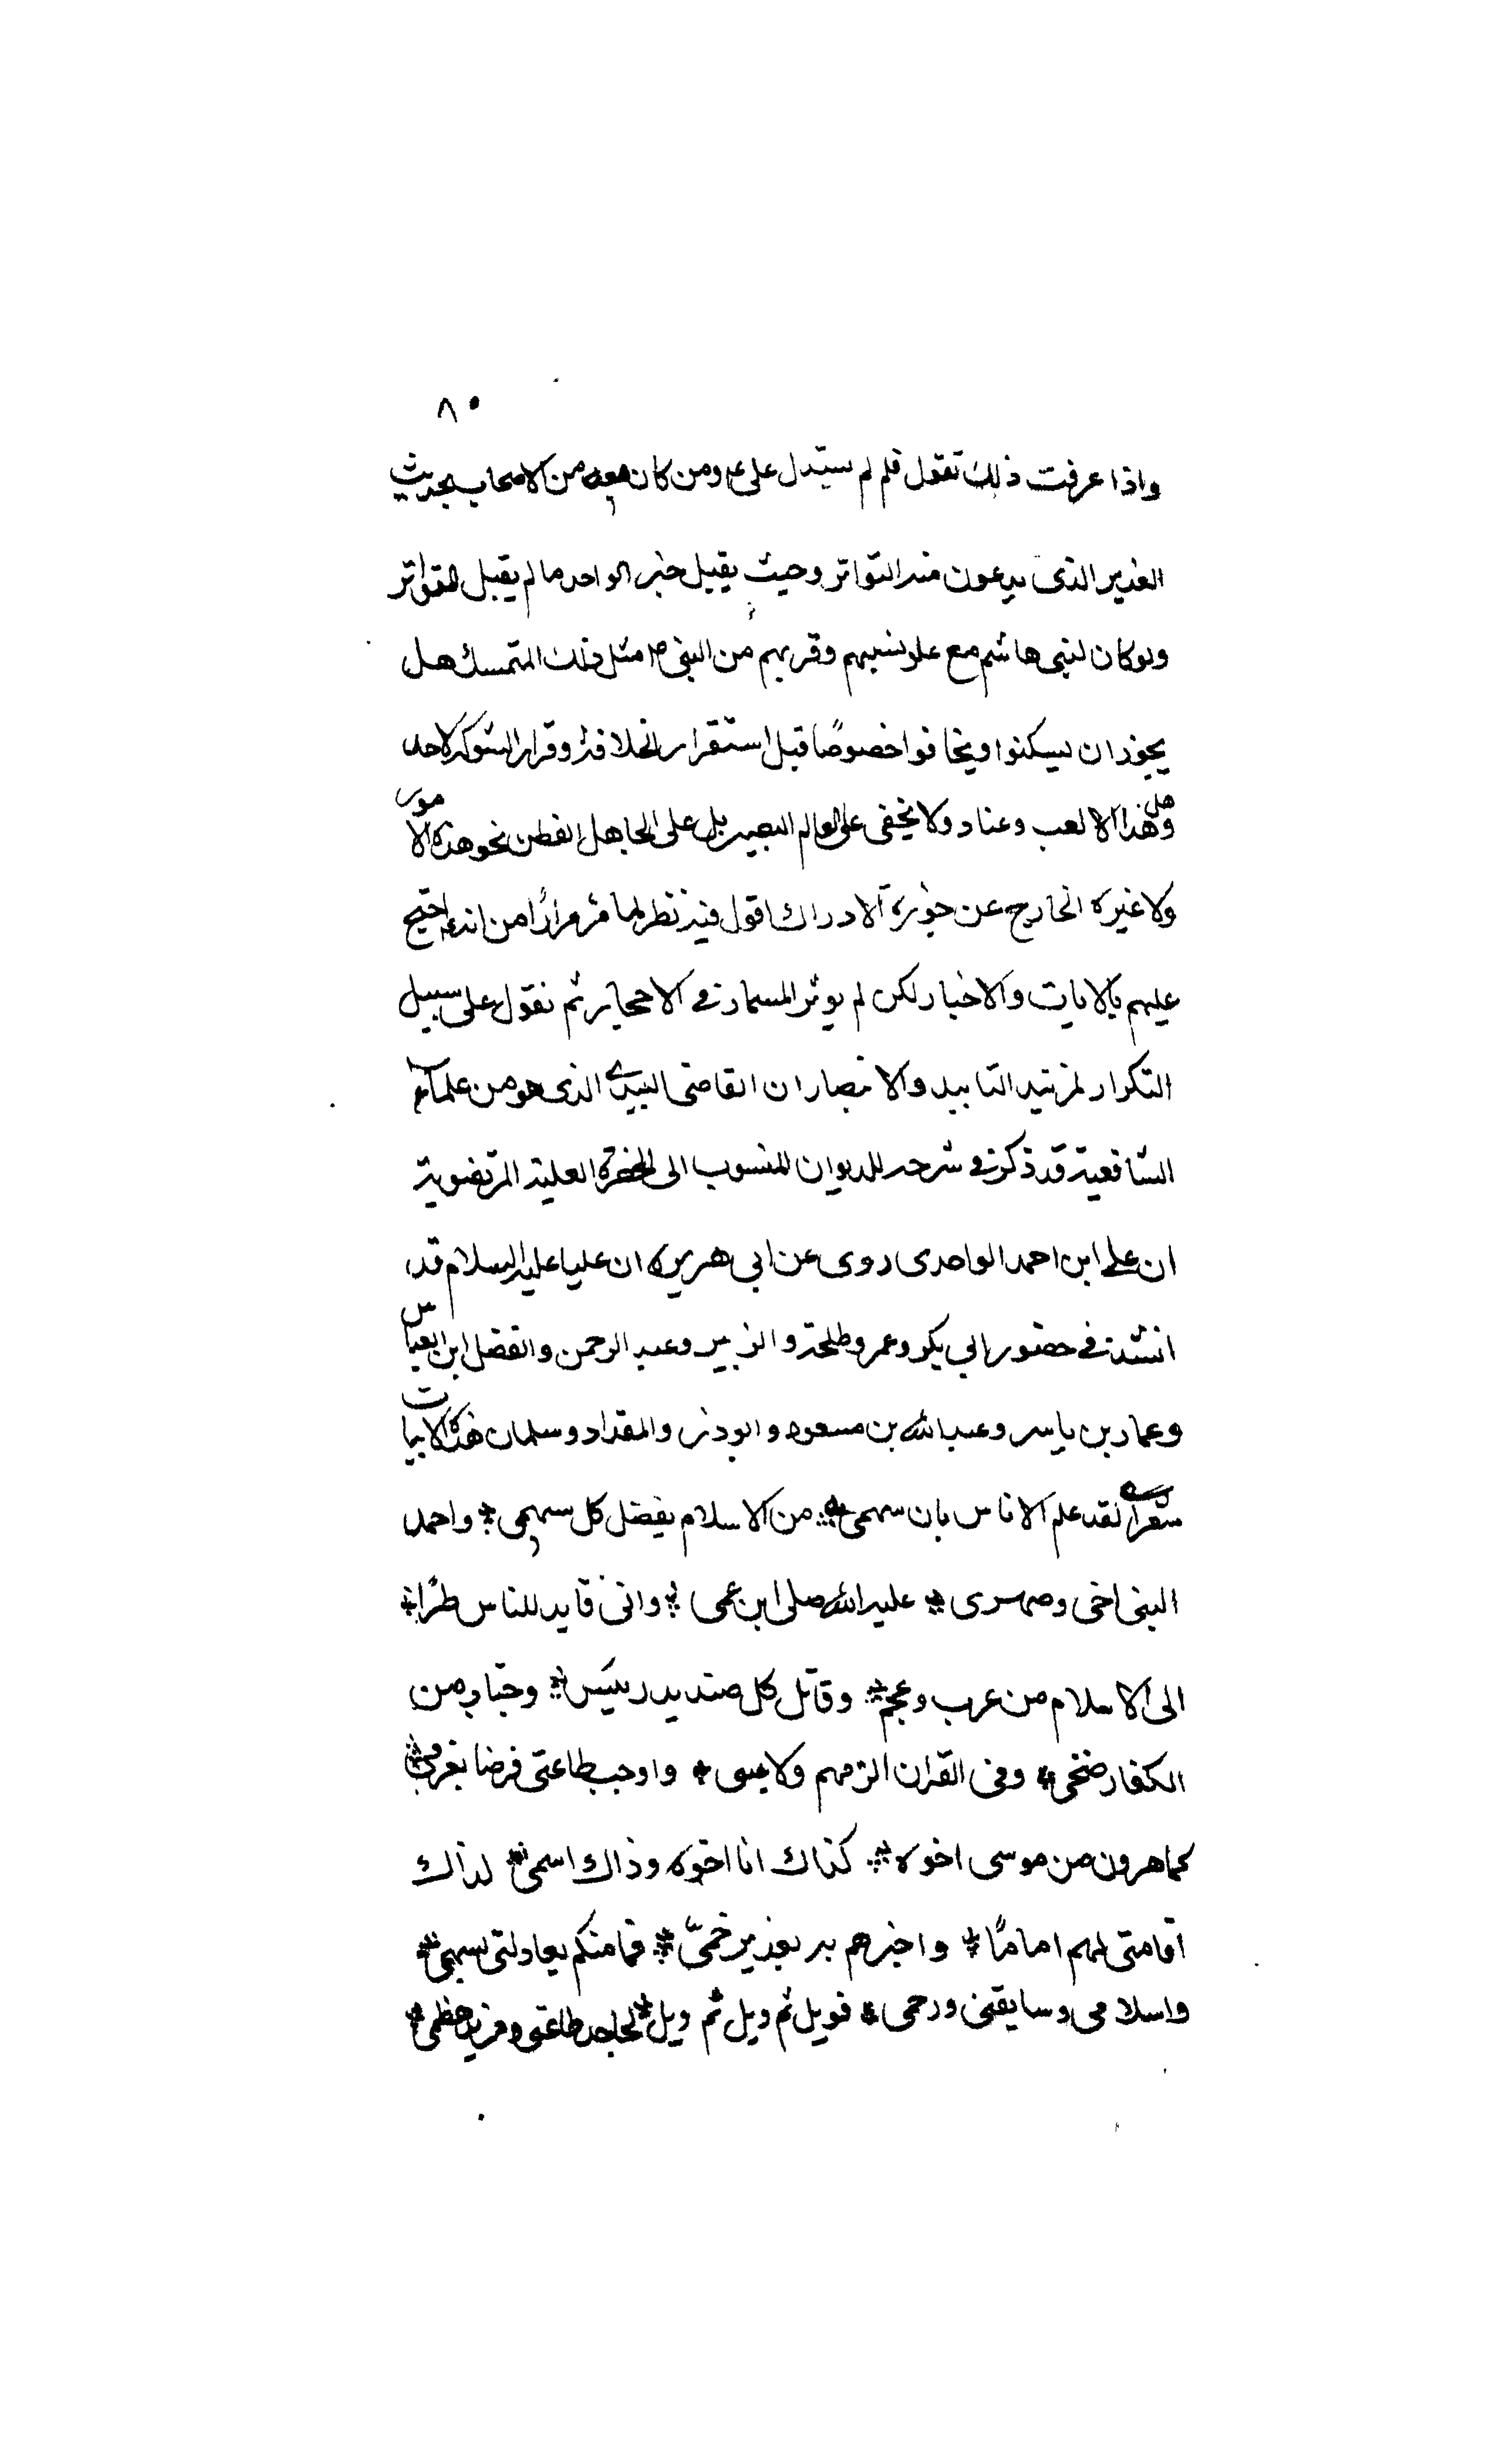 ٨٠
واذا عرفت ذلك تقول فلم لم يستدل علي ع ومن كان معه من الاصحاب بحديث
الغدير الذى يدعون منه التواتر وحيث يقبل خبر الواحد ما لم يقبل المتواتر
ولو كان لبنى هاشم مع علو نسبهم وقربهم من النبى ص مثل ذلك المتمسك هل
يجوز ان يسكتوا ويخافوا خصوصًا قبل استقرار الخلافة وقرار الشوكة لاحد
وهل هذا الا لعب وعناد ولا يخفى على العالم البصير بل على الجاهل الفطن نحو هذه الامور
ولا غيره الخارج عن حوزة الادراك اقول فيه نظر لما مر مرارًا من انه ع احتج
عليهم بالايات والاخبار لكن لم يوثر المسمار في الاحجار ثم نقول على سبيل
التكرار لمزيد التاييد والانتصار ان القاضى الميبدى الذى هو من علماء
الشافعية قد ذكر في شرحه للديوان المنسوب الى الحضرة العلية المرتضوية
ان علي ابن احمد الواحدى روى عن ابي هريره ان عليا عليه السلام قد
انشد في حضور ابي بكر وعمر وطلحة والزبير وعبد الرحمن والفضل ابن العباس
وعمار بن ياسر وعبد الله بن مسعود وابوذر والمقداد وسلمان هذه الابيات
شعرا لقد علم الاناس بان سهمى من الاسلام يفضل كل سهمى واحمد
النبى اخى وصهرى عليه الله صلى ابن عمى وانى قايد للناس طرًا
الى الاسلام من عرب وعجم وقاتل كل صنديد رئيس وجبار من
الكفار ضخمى وفى القران الزمهم ولايتى واوجب طاعتى فرضا بعزمى
كما هرون من موسى اخوه كذاك انا اخوه وذاك اسمى لذاك
اقامتى لهم امامًا واخبرهم به بغدير خمىّ فمامنكم يعادلنى بسهمى
واسلامى وسابقتى ورحمى فويل ثم ويل ثم ويل لجاحد طاعتى ومريد هظمى